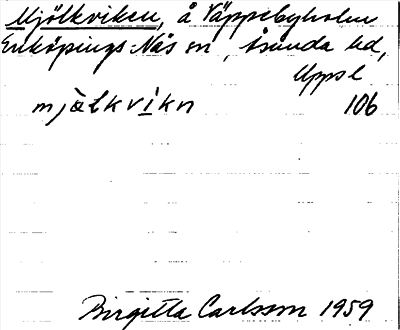 Mjölkviken, å Väppebyholm
Enköpings-Näs sn, Åsunda hd,
Uppsl
mjälkvikn 106
Birgitta Carlsson 1959